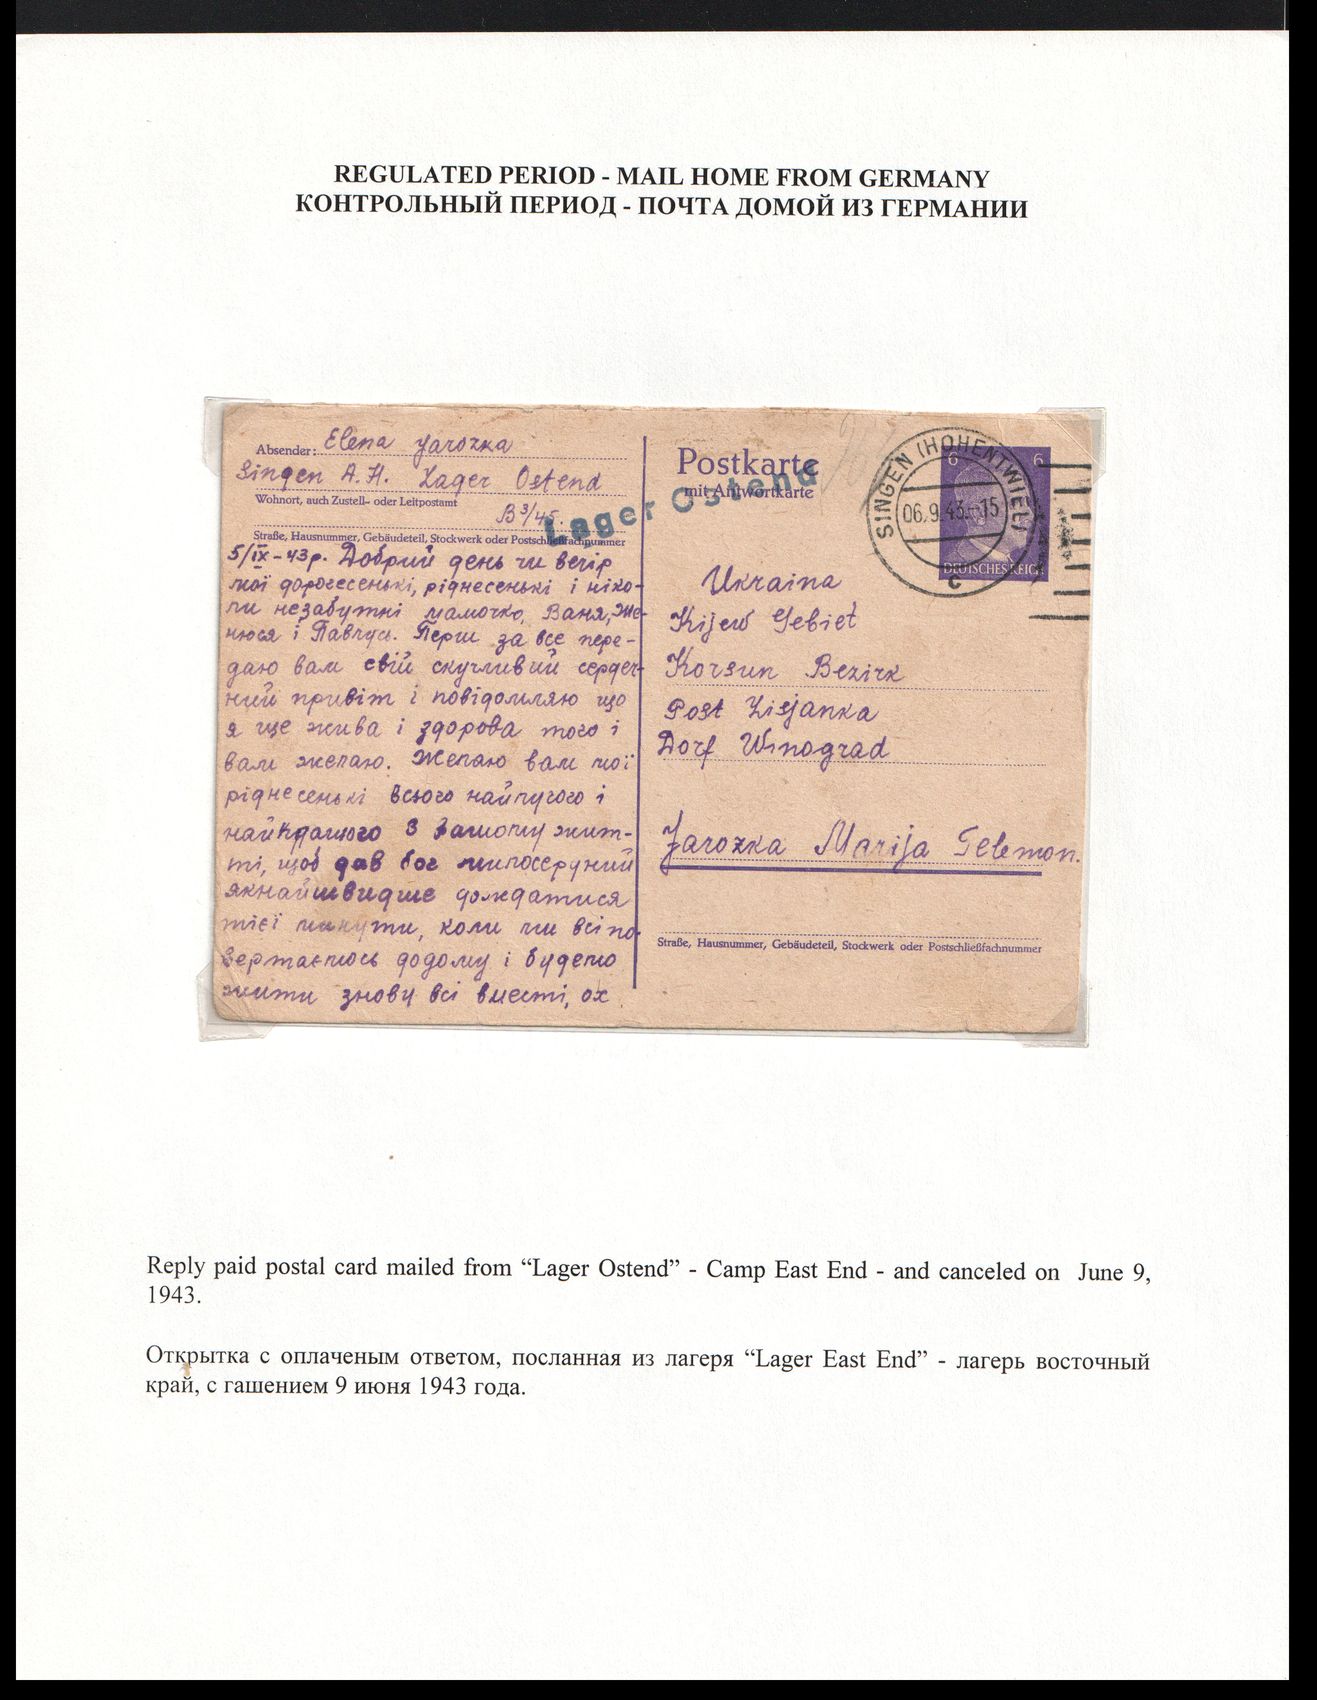 REGULATED PERIOD - MAIL HOME FROM GERMANY
КОНТРОЛЬНЫЙ ПЕРИОД - ПОЧТА ДОМОЙ ИЗ ГЕРМАНИИ
Absender: Elena Jarozka
Singen A. H. Lager Ostend
Wohnort, auch Zustell- oder Leitpostamt
B3/45.
Straße, Hausnummer, Gebäudeteil, Stockwerk oder Postschließfachnummer
Lager Ostend
5/ІХ-43р. Добрий день чи вечір
мої дорогесенькі, ріднесенькі і ніко-
ли незабутні мамочко, Ваня, Же-
нюся і Павлусь. Перш за все пере-
даю вам свій скучливий сердеч-
ний привіт і повідомляю що
я ще жива і здорова того і
вам желаю. Желаю вам мої
ріднесенькі всього найлучого і
найкращого в вашому жит-
ті, щоб дав бог милосердний
якнайшвидше дождатися
тієї минути, коли ми всі по-
вертаємось додому і будемо
жити знову всі вместі, ох
Postkarte
mit Antwortkarte
SINGEN (HOHENTWIEL)
06.9.43.-15
c
6 6
DEUTSCHES REICH
Ukraina
Kijew Gebiet
Korsun Bezirk
Post Lisjanka
Dorf Winograd
Jarozka Marija Telemon.
Straße, Hausnummer, Gebäudeteil, Stockwerk oder Postschließfachnummer
Reply paid postal card mailed from “Lager Ostend” - Camp East End - and canceled on June 9,
1943.
Открытка с оплаченым ответом, посланная из лагеря “Lager East End” - лагерь восточный
край, с гашением 9 июня 1943 года.